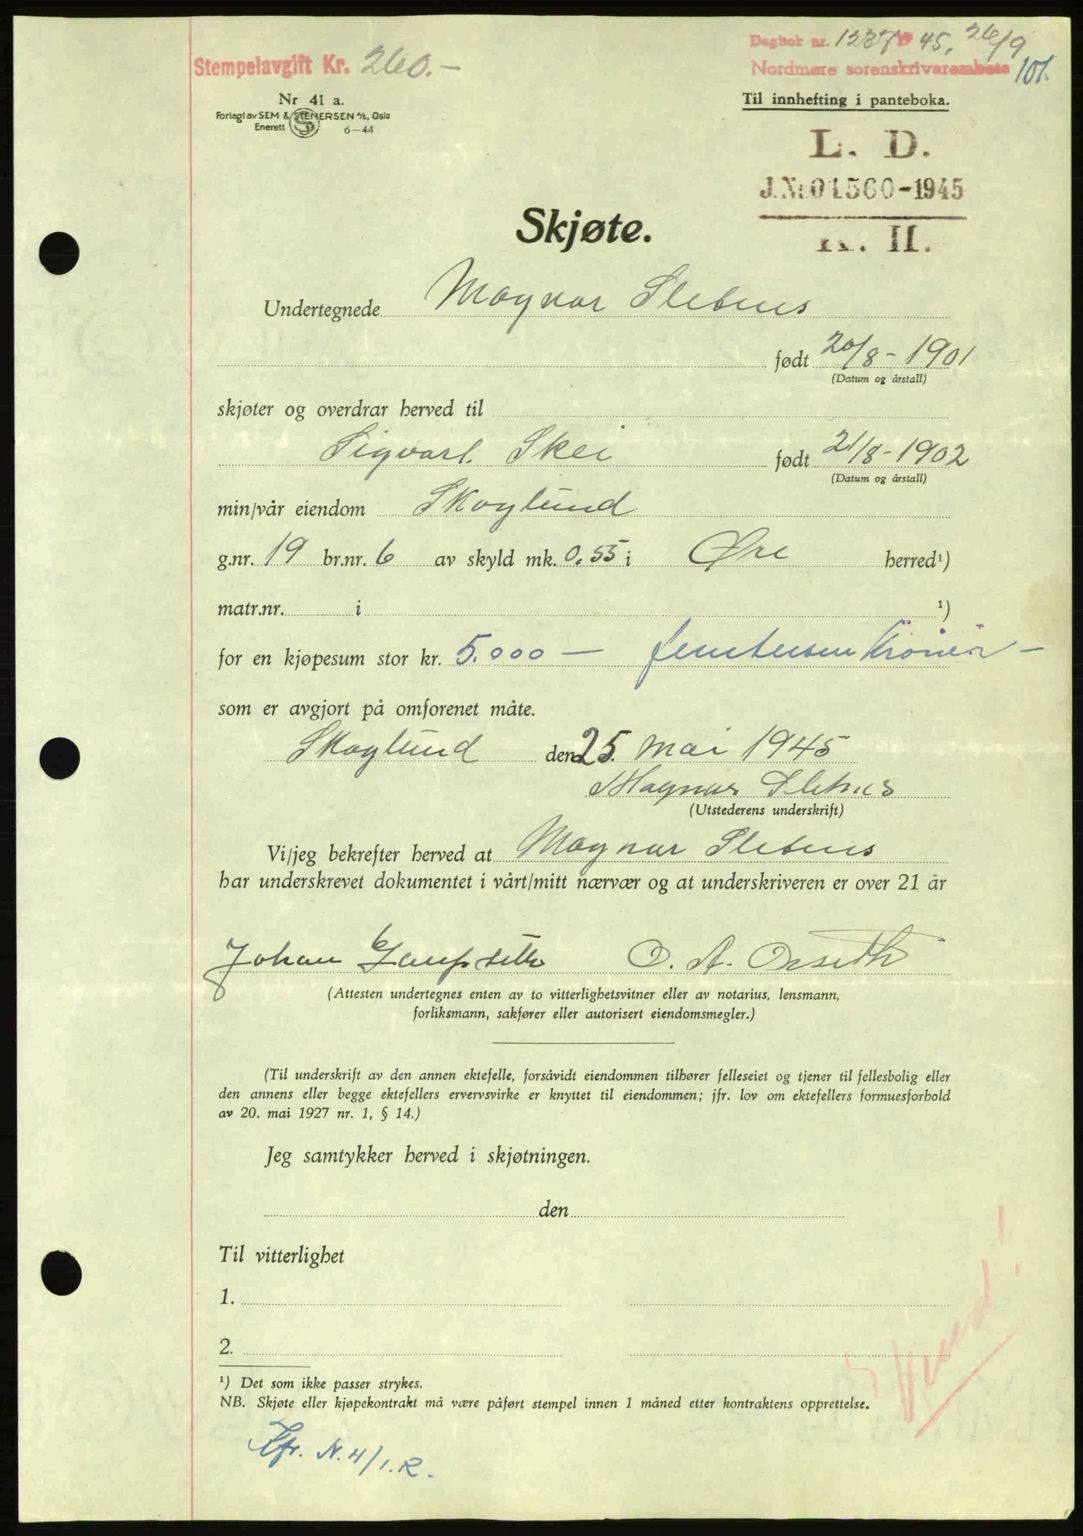 Stempelavgift Kr. 260.-
Dagbok nr. 1237 45, 26/9
Nordmøre sorenskriverembete 101.
Nr 41 a.
Forlagt av SEM & STENERSEN A/S, Oslo
Enerett 6-44
Til innhefting i panteboka.
L. D.
J.Nr. 01560-1945
K. H.
Skjøte.
Undertegnede Magnar Sletnes
født 20/8-1901
(Datum og årstall)
skjøter og overdrar herved til
Sigvart Skei født 21/8-1902
(Datum og årstall)
min/vår eiendom Skoglund
g.nr. 19 br.nr. 6 av skyld mk. 0.55 i Øre herred¹)
matr.nr. i ¹)
for en kjøpesum stor kr. 5.000 — femtusen Kroner —
som er avgjort på omforenet måte.
Skoglund den 25. mai 1945
Magnar Sletnes
(Utstederens underskrift)
Vi/jeg bekrefter herved at Magnar Sletnes
har underskrevet dokumentet i vårt/mitt nærvær og at underskriveren er over 21 år
Johan O. A. Orseth
(Attesten undertegnes enten av to vitterlighetsvitner eller av notarius, lensmann,
forliksmann, sakfører eller autorisert eiendomsmegler.)
(Til underskrift av den annen ektefelle, forsåvidt eiendommen tilhører felleseiet og tjener til fellesbolig eller
den annens eller begge ektefellers ervervsvirke er knyttet til eiendommen; jfr. lov om ektefellers formuesforhold
av 20. mai 1927 nr. 1, § 14.)
Jeg samtykker herved i skjøtningen.
den
Til vitterlighet
1.
2.
¹) Det som ikke passer strykes.
NB. Skjøte eller kjøpekontrakt må være påført stempel innen 1 måned etter kontraktens opprettelse.
Jfr. N. 4/1.R.